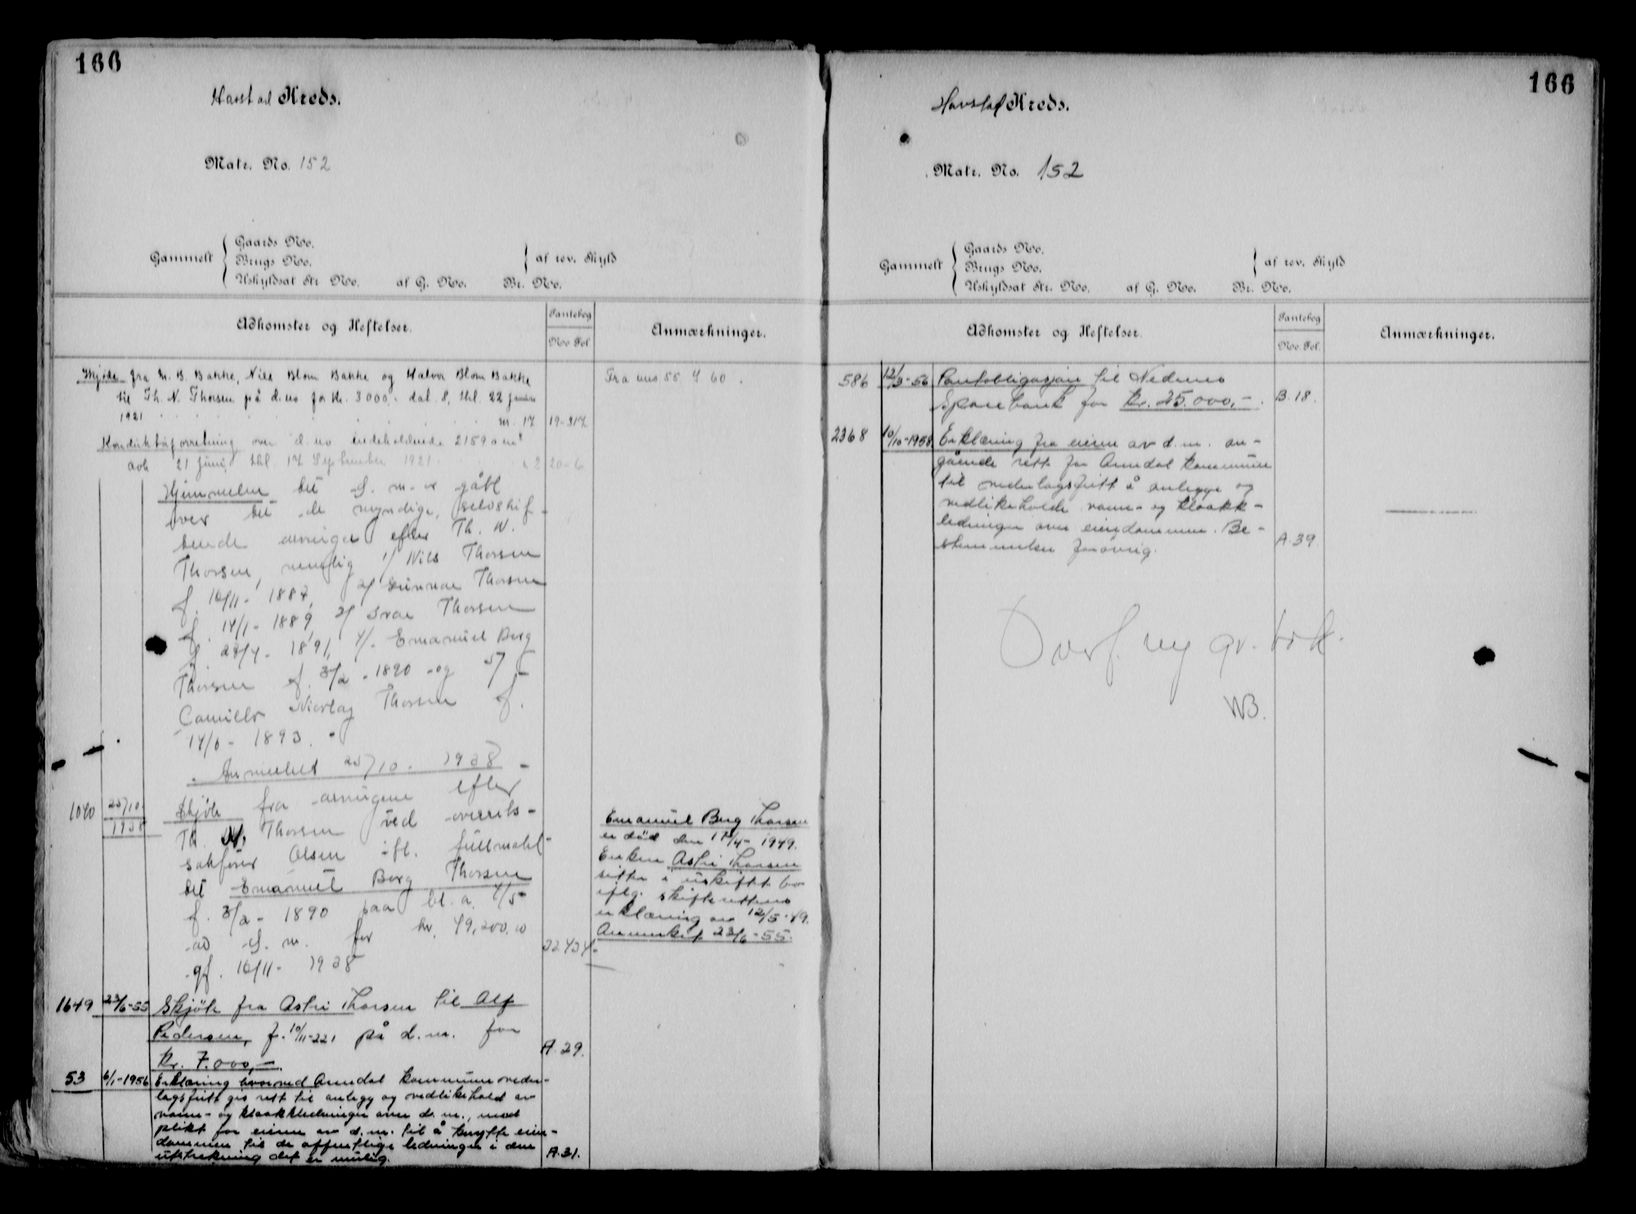 166
Havstad Kreds.
Matr. No. 152
Gammelt
Gaards No.
Brugs No.
Uskyldsat Str. No. af G. No. Br. No.
af rev. Skyld
Adkomster og Heftelser.
Pantebog
No. Fol.
Anmærkninger.
Skjøde fra N. B. Bakke, Nils Blom Bakke og Halvor Blom Bakke
til Th. N. Thorsen på d. no for Kr. 3000,- dat. 8, thl. 22 januar
1921 nr. 17 19-817
over d. no indeholdende 2159.0 m²
avh 21 juni thl. 17 September 1921 20-6
Fra mno 55 & 60.
Hjemmelen til d. m. er gått
over til de myndige, selvskif-
tende arvinger efter Th. N.
Thorsen, nemlig 1/ Nils Thorsen
f. 16/11- 1887, 2/ Gunnar Thorsen
f. 14/1- 1889, 3/ Ivar Thorsen
f. 28/4- 1891, 4/ Emanuel Berg
Thorsen f. 3/2- 1890 og 5/
Camilla Thorsen f.
14/6- 1893.
Anmerket 25/10- 1938
1040 25/10 1938 Skjøte fra arvingene efter
Th. N. Thorsen ved overretts-
sakfører Olsen ifl. fullmakt
til Emanuel Berg Thorsen
f. 3/2- 1890 paa bl. a. 4/5
av d. m. for kr. 49,200.10
gf. 16/11- 1938
22 434
Emanuel Berg Thorsen
er död den 17/4- 1949.
Enken Astri Thorsen
sitter i uskiftet bo
iflg. skifterettens
erklæring av 12/5-49.
Anmerket 23/6-55.
1649 23/6-55 Skjöte fra Astri Thorsen til Alf
Pedersen, f. 10/11-221 på d. m. for
kr. 7.000,- A.29.
53 6/1-1956 Erklæring hvorved Arendal kommune veder-
lagsfritt gis rett til anlegg og vedlikehold av
vann- og kloakkledninger over d. m., med
plikt for eieren av d. m. til å knytte eien-
dommen til de offentlige ledninger i den
utstrekning det er mulig. A.31.
166
Havstad Kreds.
Matr. No. 152
Gammelt
Gaards No.
Brugs No.
Uskyldsat Str. No. af G. No. Br. No.
af rev. Skyld
Adkomster og Heftelser.
Pantebog
No. Fol.
Anmærkninger.
586 12/3-56 Pantobligasjon til Nedenes
Sparebank for kr. 25.000,-. B.18.
2368 10/10-1958 Erklæring fra eieren av d. m. an-
gående rett for Arendal kommune
til vederlagsfritt å anlegge og
vedlikeholde vann- og kloakk-
ledninger over eiendommen. Be-
stemmelser forøvrig. A.39.
Overf. ny gr. bok.
WB.